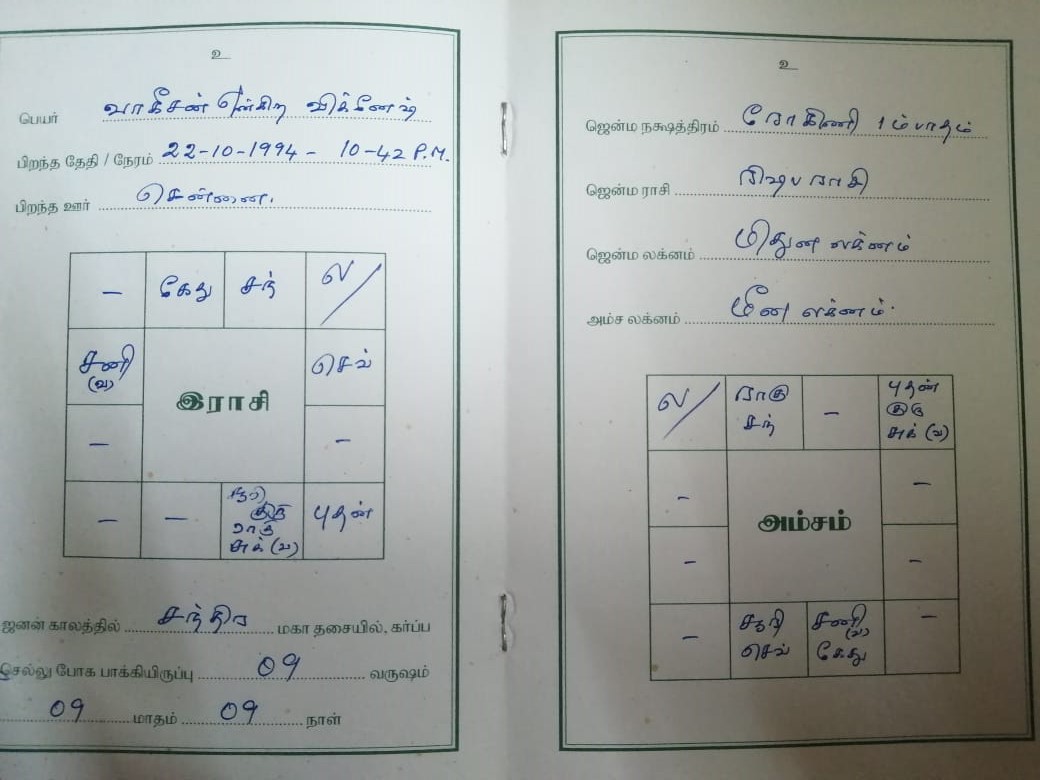 உ
பெயர் வாகீசன் என்கிற விக்னேஷ்
பிறந்த தேதி / நேரம் 22-10-1994 - 10-42 P.M.
பிறந்த ஊர் சென்னை.
– கேது சந் ல/
சனி (வ) செவ்
இராசி
– –
– – சூரி குரு ராகு சுக் (வ) புதன்
ஜனன காலத்தில் சந்திர மகா தசையில், கர்ப்ப
செல்லு போக பாக்கியிருப்பு 09 வருஷம்
09 மாதம் 09 நாள்
உ
ஜென்ம நக்ஷத்திரம் ரோகிணி 1ம் பாதம்
ஜென்ம ராசி ரிஷப ராசி
ஜென்ம லக்னம் மிதுன லக்னம்
அம்ச லக்னம் மீன லக்னம்.
ல/ ராகு சந் – புதன் குரு சுக் (வ)
– –
அம்சம்
– –
– சூரி செவ் சனி (வ) கேது –